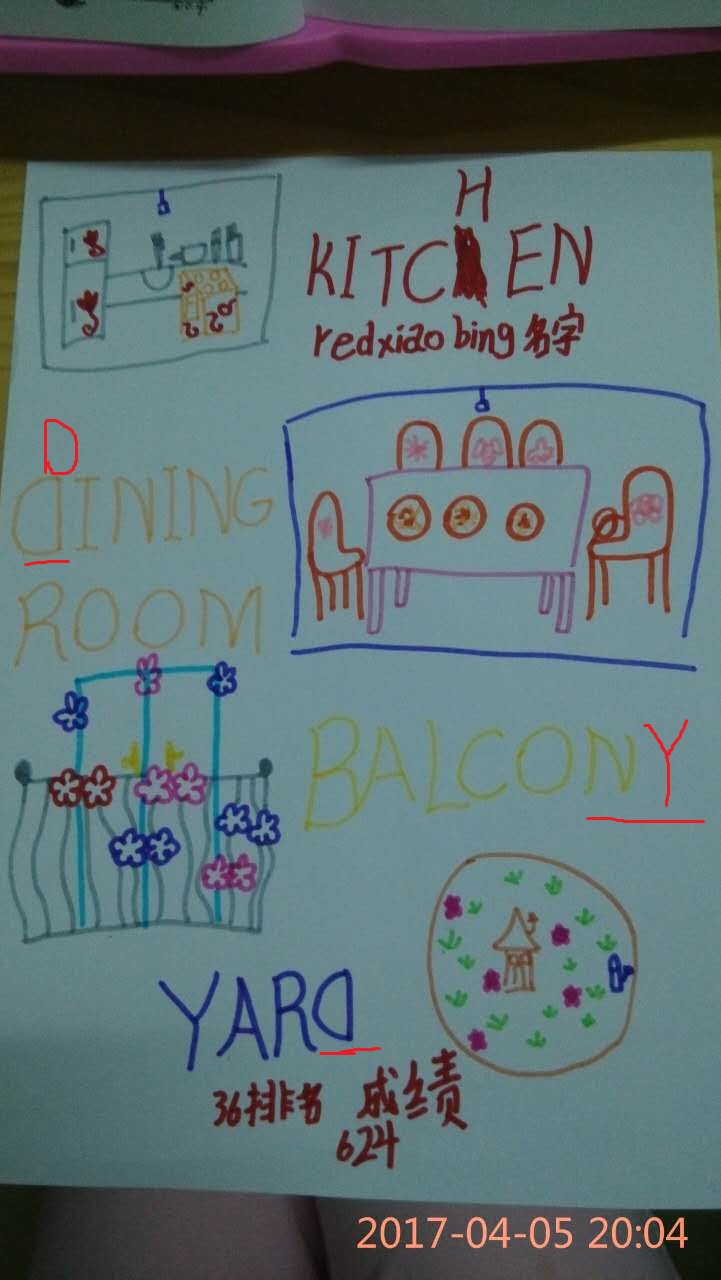 H
KITCHEN
redxiaobing 名字
D
DINING
ROOM
BALCONY
YARD
36排书 成绩
624
2017-04-05 20:04